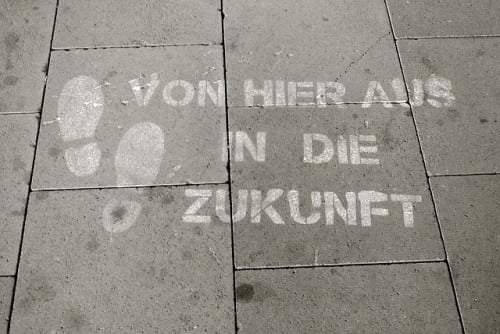 VON HIER AUS
IN DIE
ZUKUNFT